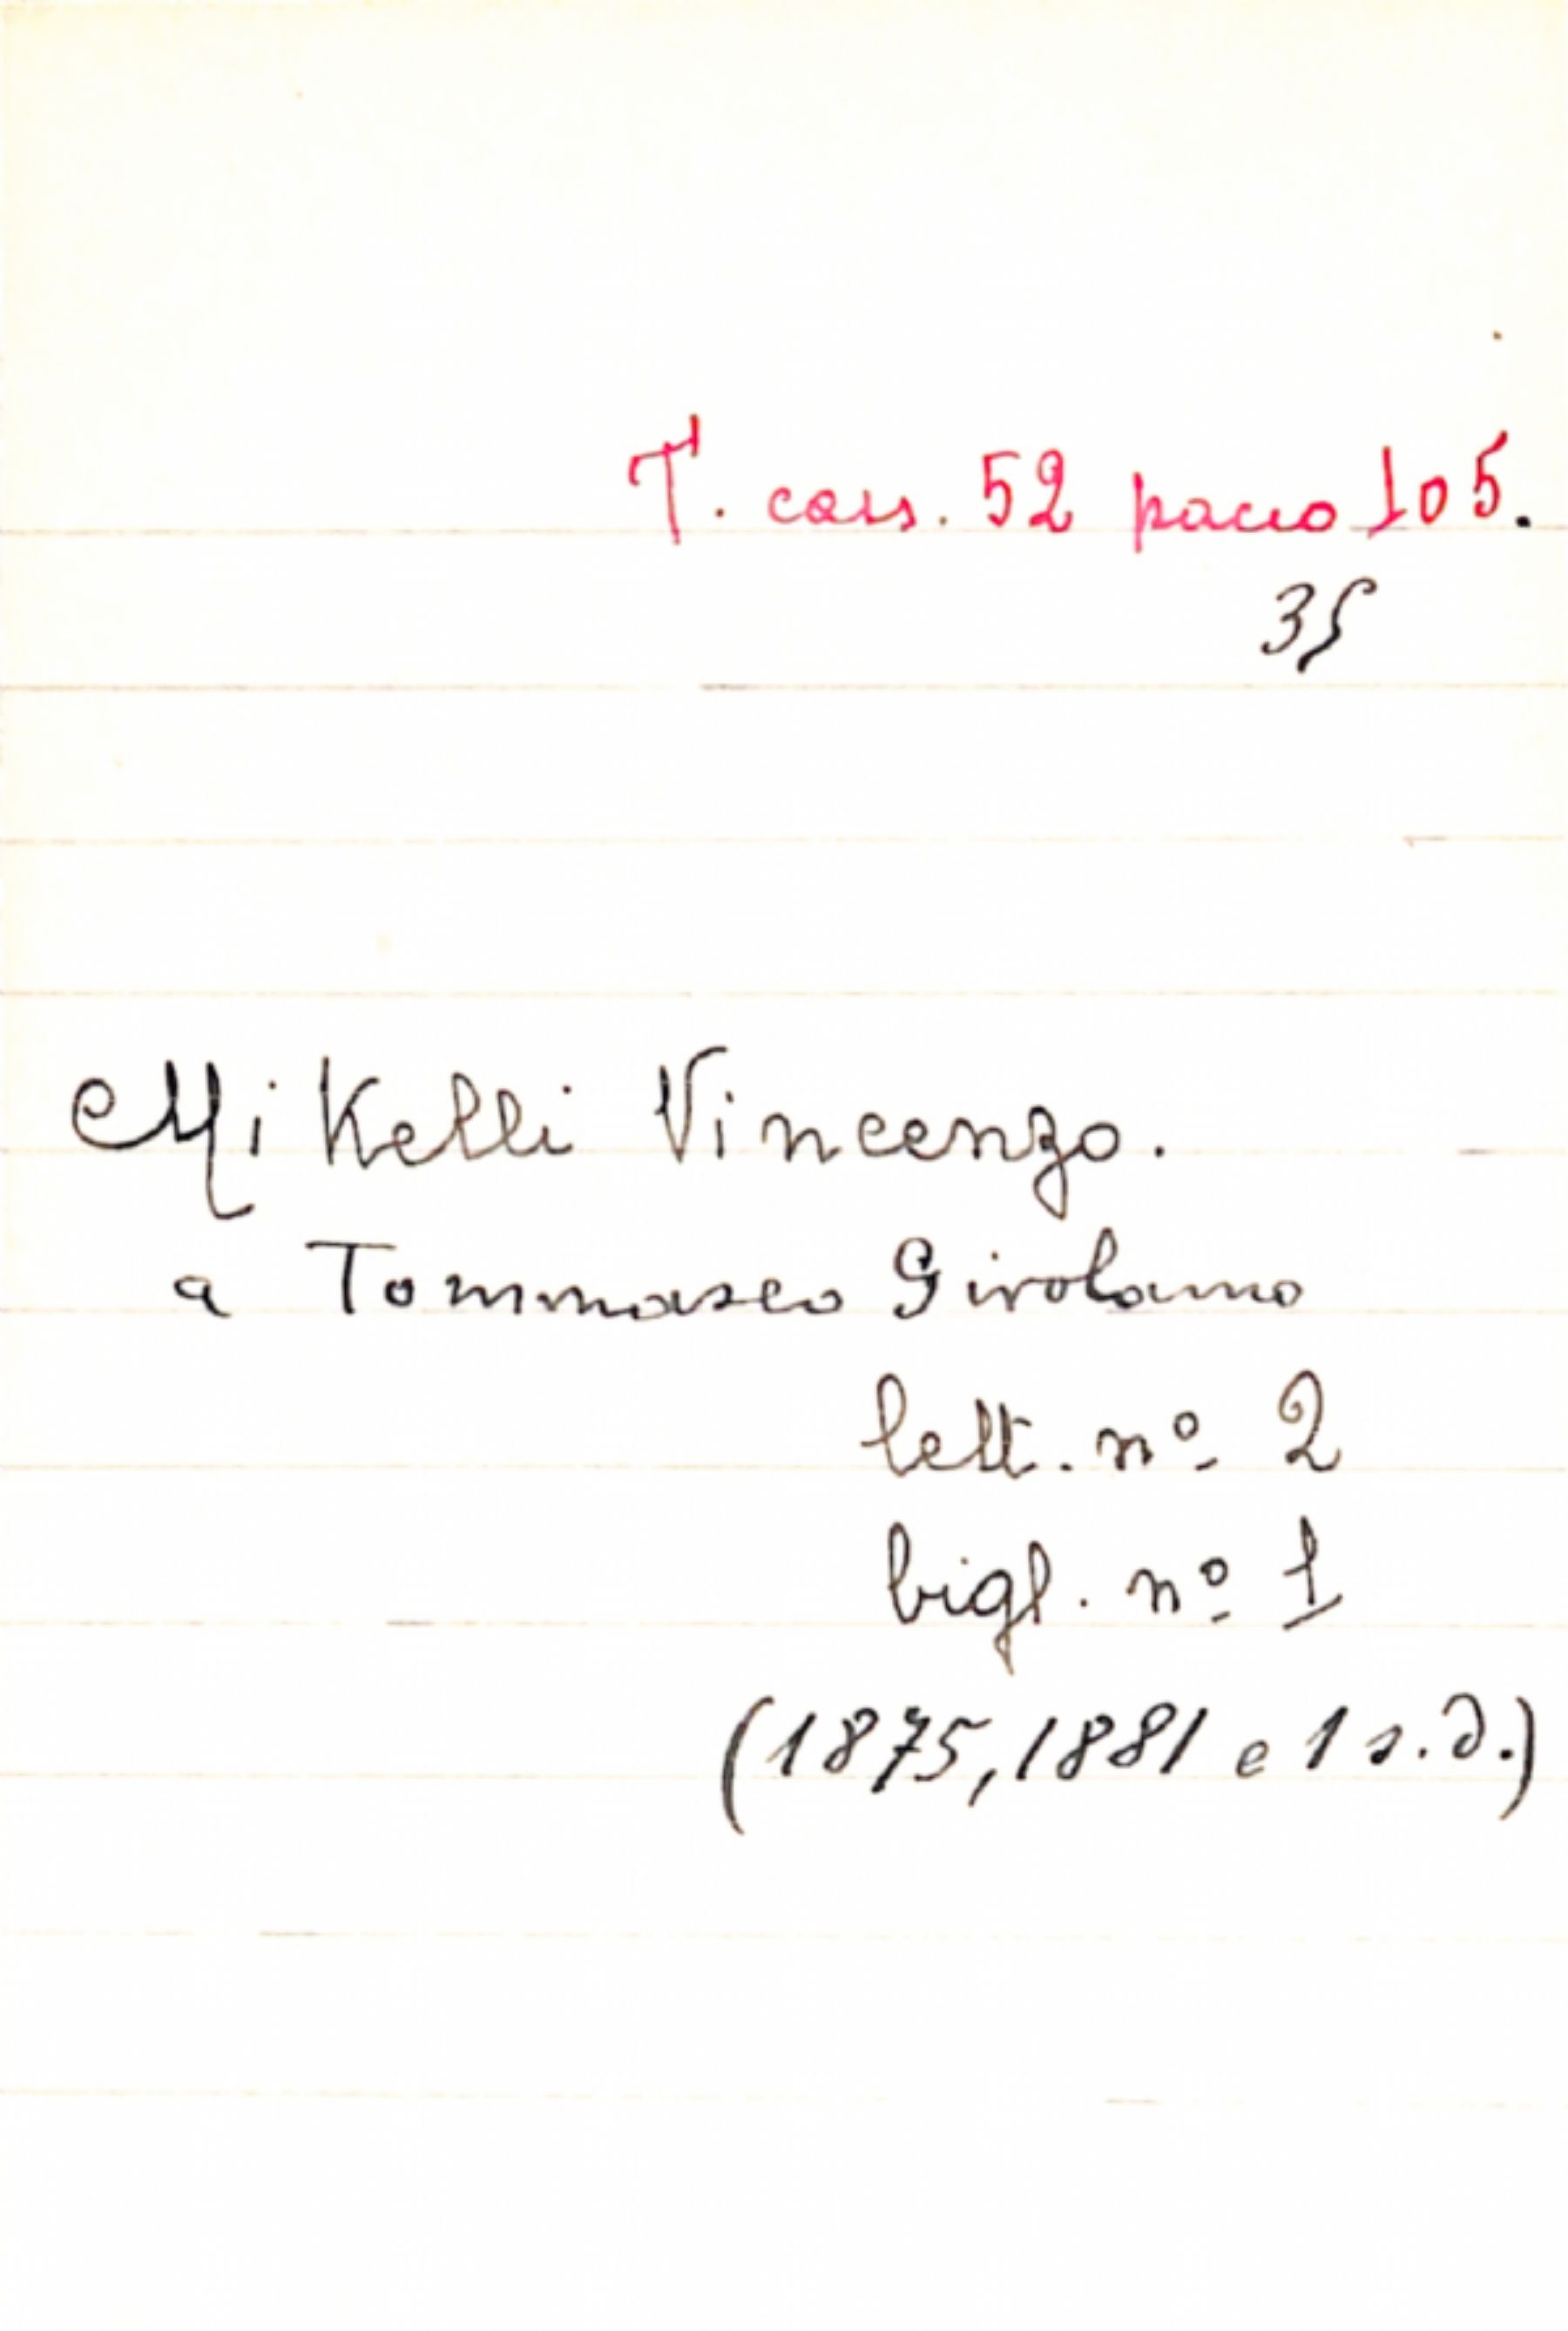 T. cass. 52 pacco 105.
35
Mikelli Vincenzo.
a Tommaseo Girolamo
lett. nº 2
bigl. nº 1
(1875, 1881 e 1 s.d.)